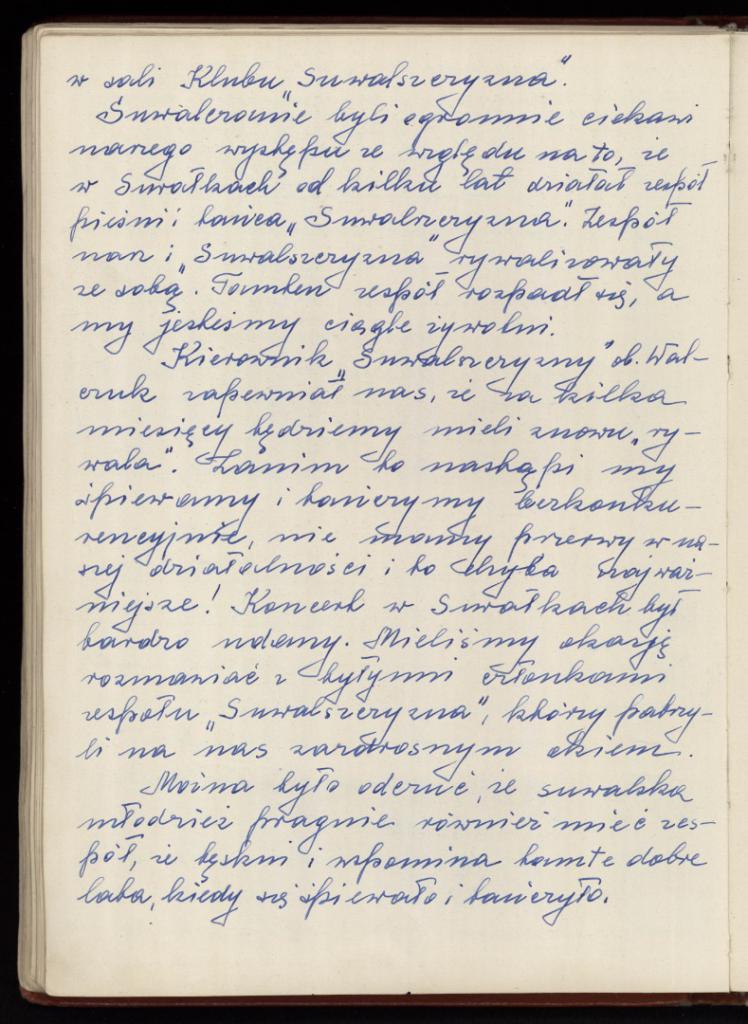 w sali Klubu „Suwalszczyzna".
Suwalczanie byli ogromnie ciekawi
naszego występu ze względu na to, że
w Suwałkach od kilku lat działał zespół
pieśni i tańca „Suwalszczyzna". Zespół
nasz i „Suwalszczyzna" rywalizowały
ze sobą. Tamten zespół rozpadł się, a
my jesteśmy ciągle żywotni.
Kierownik „Suwalszczyzny" ob. Wal-
czuk zapewniał nas, że za kilka
miesięcy będziemy mieli znowu „ry-
wala". Zanim to nastąpi my
śpiewamy i tańczymy bezkonku-
rencyjnie, nie mamy przerwy w na-
szej działalności i to chyba najważ-
niejsze! Koncert w Suwałkach był
bardzo udany. Mieliśmy okazję
rozmawiać z byłymi członkami
zespołu „Suwalszczyzna", którzy patrzy-
li na nas zazdrosnym okiem.
Można było odczuć, że suwalska
młodzież pragnie również mieć zes-
pół, że tęskni i wspomina tamte dobre
lata, kiedy się śpiewało i tańczyło.